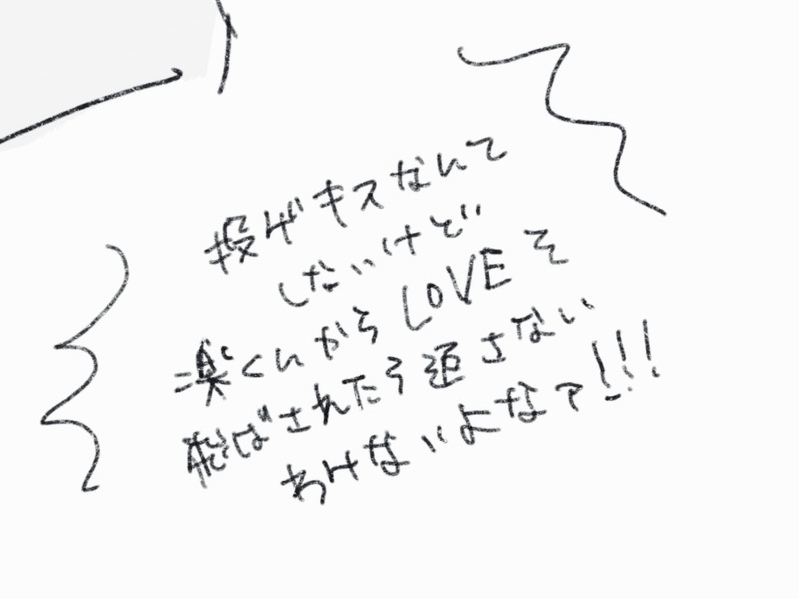 投げキスなんて
しないけど
楽くんからLOVEを
飛ばされたら返さない
わけないよなァ!!!